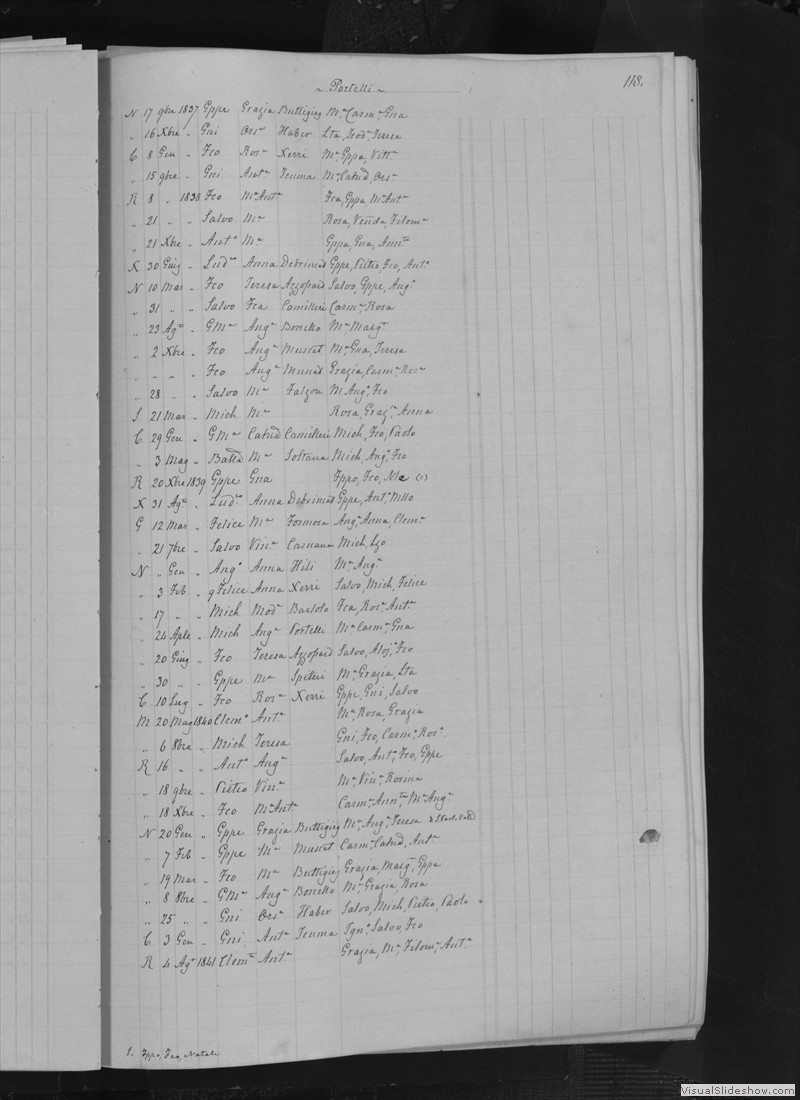 118.
~ Portelli ~
N 17 9bre 1837 Gppe Grazia Buttigieg Mª Carmª Gna
" 16 Xbre " Gni Orsª Haber Lta, Teodª Teresa
C 8 Gen " Fco Rosª Xerri Mª Gppa, Vittª
" 15 9bre " Gni Antª Teuma Mª Catnd, Orsª
R 8 " 1838 Fco Mª Antª Fca, Gppa, Mª Antª
" 21 " " Salvo Mª Rosa, Venda, Filomª
" 21 Xbre " Antº Mª Gppa, Gna, Annta
X 30 Giug " Ludco Anna Debrincat Gppe, Pietro, Fco, Antº
N 10 Mar " Fco Teresa Azzopard Salvo, Gppe, Angº
" 31 " " Salvo Fca Camilleri Carmª Rosa
" 23 Agto " GMª Angª Bonello Mª Margª
" 2 Xbre " Fco Angª Muscat Mª Gna, Teresa
" " " " Fco Angª Muscat Grazia, Carmª Rosª
" 28 " " Salvo Mª Falzon M. Angº, Fco
S 21 Mar " Mich Mª Rosa, Grazª, Anna
C 29 Gen " GMª Catnd Camilleri Mich, Fco, Paolo
" 3 Mag " Batta Mª Soltana Mich, Angº, Fco
R 20 Xbre 1839 Gppe Gna Fppo, Fco, Nle (1)
X 31 Agto " Ludco Anna Debrincat Gppe, Antº Mllo
G 12 Mar " Felice Mª Formosa Angª Anna, Clemª
" 21 7bre " Salvo Vinª Caruana Mich, Lzo
N " Gen " Angº Anna Hili Mª Angª
" 3 Feb " gFelice Anna Xerri Salvo, Mich, Felice
" 17 " " Mich Modª Bartolo Fca, Rosª Antª
" 24 Aple " Mich Angª Portelli Mª Carmª Gna
" 20 Giug " Fco Teresa Azzopard Salvo, Alojº Fco
" 30 " " Gppe Mª Spiteri Mª Grazia, Lta
C 10 Lug " Fco Rosª Xerri Gppe, Gni, Salvo
M 20 Mag 1840 Clemº Antª Mª Rosa, Grazia
" 6 8bre " Mich Teresa Gni, Fco, Carmº, Rosº
R 16 " " Antº Angª Salvo, Antº, Fco, Gppe
" 18 9bre " Pietro Vinª Mª Vinª, Rosina
" 18 Xbre " Fco Mª Antª Carmª, Annta, Mª Angª
N 20 Gen " Gppe Grazia Buttigieg Mª, Angª, Teresa
" 7 Feb " Gppe Mª Muscat Carmª Catnd, Antª
" 19 Mar " Fco Mª Buttigieg Grazia, Margª, Gppa
" 8 8bre " GMª Angª Bonello Mª Grazia, Rosa
" 25 " " Gni Orsª Haber Salvo, Mich, Pietro, Paolo
C 3 Gen " Gni Antª Teuma Ignº, Salvo, Fco
R 4 Agto 1841 Clemte Antª Grazia, Mª Filomª Antª
1. Fppo, Fco, Natale
VisualSlideshow.com